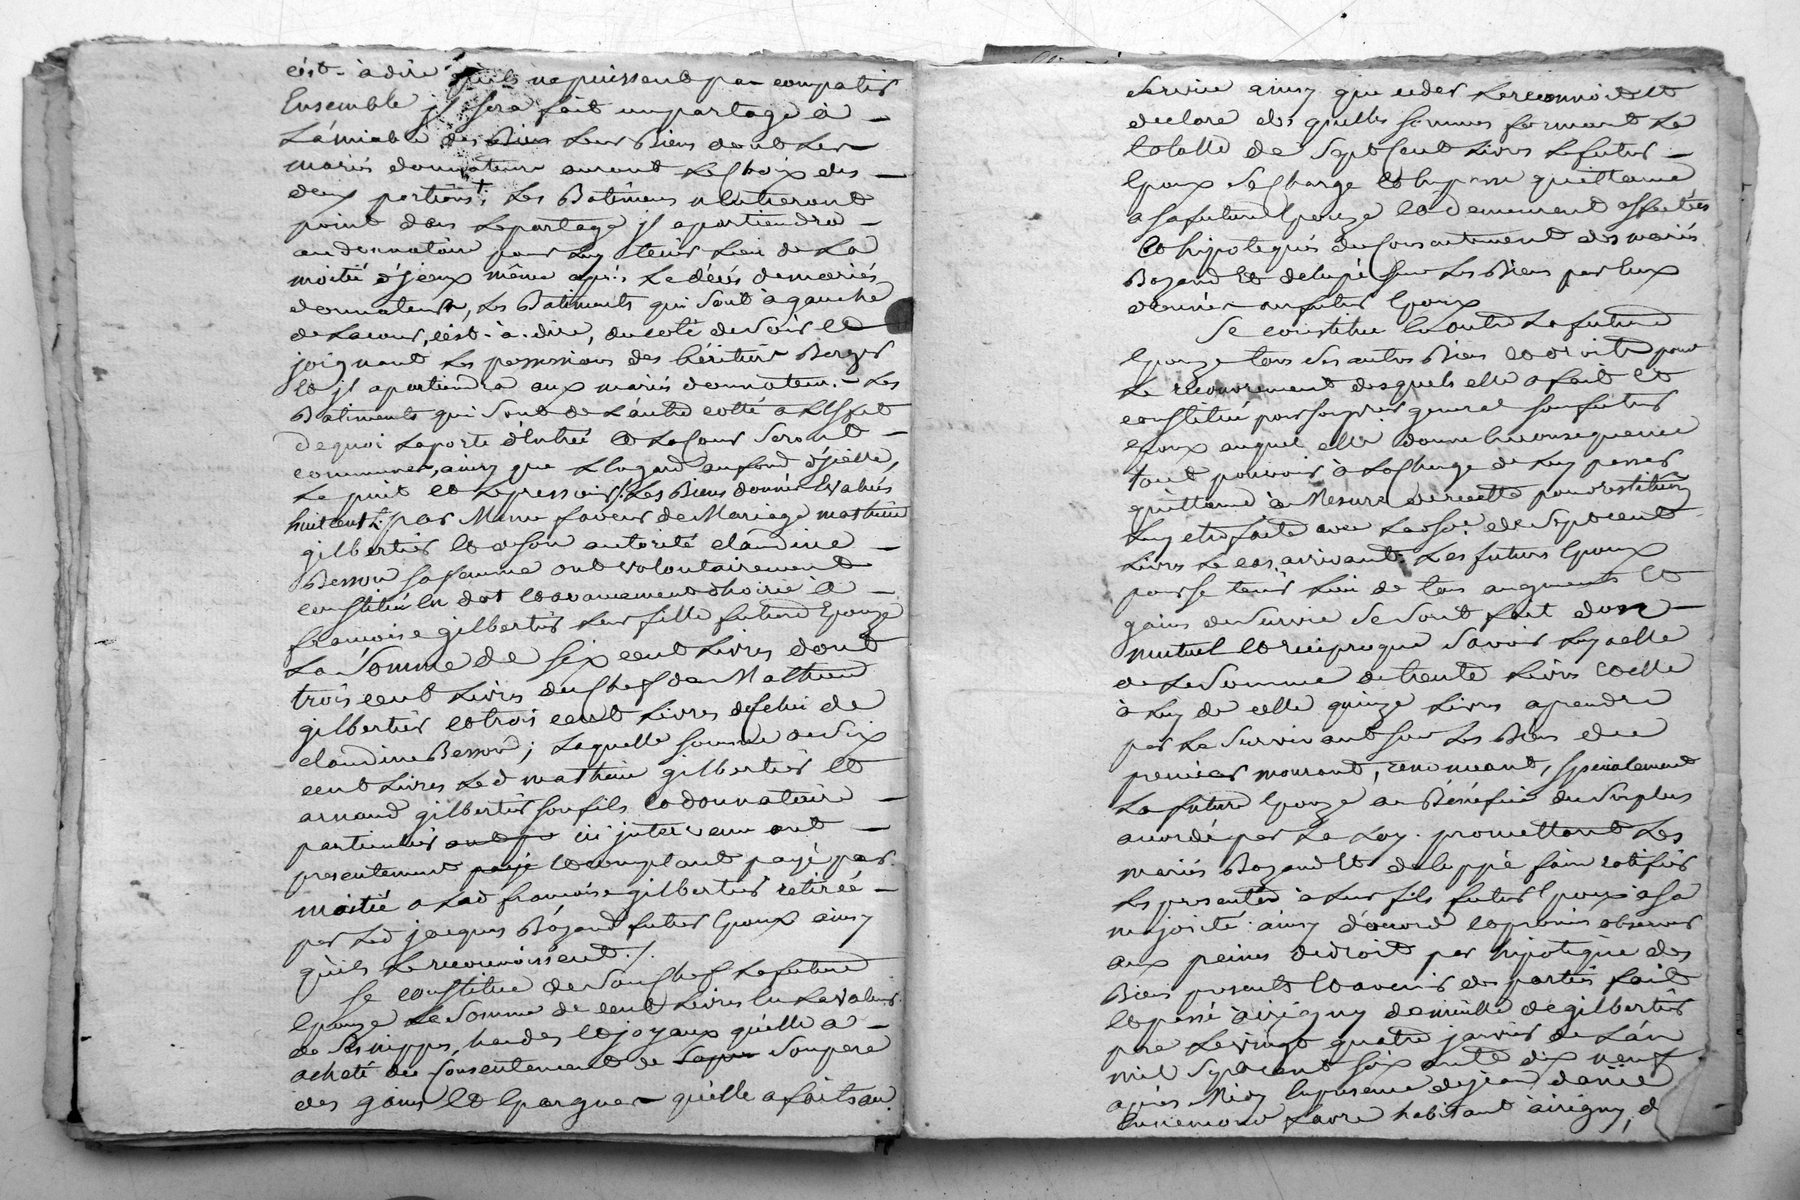 c'est-à-dire qu'ils ne puissent pas compatir
Ensemble jl sera fait un partage à
La'miable des Biens Leurs Biens dont Les
mariés donnateurs auront Le Choix des
deux portions. Les Batimens n'entreront
point dans Le partage jl apartiendra
au donnataire pour Luy tenir Lieu de La
moitié d'jceux même après Le décés de mariés
donnateurs, Les Batiments qui Sont à gauche
de La cour, c'est-à-dire, du coté de Soir et
joignant Les possessions des héritiers Berger
et jl apartiendra aux mariés donnateurs Les
Batiments qui Sont de L'autre cotté a L'Est
de quoi La porte d'Entrée et La Cour Seront
communes, ainsy que Le au fond d'jcelle,
Le puit et Le pressoir. Les Biens donnés Evalués
huit cent #. par Meme faveur de Mariage mathieu
gilbertier et de son autorité claudine
Besson sa femme ont volontairement
constitué En dot et avancement d'hoirie à
francoise gilbertier Leur fille future Epouze
La Somme de Six cent Livres dont
trois cent Livres du Chef de Mathieu
gilbertier et trois cent Livres de celui de
claudine Besson; Laquelle somme de Six
cent Livres Led mathieu gilbertier et
arnaud gilbertier son fils et donnataire
particulier ont ici jntervenu ont
presentement payé et comptant payé par
moitié a Lad francoise gilbertier retirée
par Led jacques Bozand futur Epoux ainsy
qu'ils Le reconnoissent./.
Se constitue de Son Chef La future
Epouze La Somme de cent Livres En La valeur
de Ses nippes, hardes et joyaux qu'elle a
acheté du Consentement de Son pere
des gains et Epargnes qu'elle a faits au
service ainsy que Le reconnoit et
declare des quelles sommes formant La
totalle de Sept Cent Livres Le futur
Epoux Se Charge et En passe quittance
a sa future Epouze et demeurent affectés
et hipotequés du Consentement des mariés
Bozand et delupé Sur Les Biens par Eux
donnés au futur Epoux
Se constitue En outre La future
Epouze tous Ses autres Biens et droits pour
Le recouvrement desquels elle a fait et
constitué pour Son procureur general Son futur
Epoux auquel elle donne En consequence
tout pouvoir à La Charge de Luy passer
quittance à Mesure de recette pour restitution
Luy etre faite avec La de Sept cent
Livres Le cas arrivant. Les futurs Epoux
pour Se tenir Lieu de tous augments et
gains de Survie Se Sont fait don
mutuel et reciproque Savoir Luy a elle
de La Somme de trente Livres et elle
à Luy de celle quinze Livres a prendre
par Le Survivant Sur Les Biens du
premier mourant, renonceant, Specialement
La future Epouze au Benéfice du Surplus
accordé par La Loy. promettant Les
mariés Bozand et deluppé faire ratifier
Les presentes à Leur fils futur Epoux a Sa
majorité. ainsy d'acord et promis observer
aux peines de droit par hipotéque des
Biens present et avenir des parties fait
et passé à irigny domicile de gilbertier
pere Le vingt quatre janvier de L'an
mil Sept cent soix ante dix neuf
après Midy En presence de jean danie
Ennemond favre habitant à irigny, d